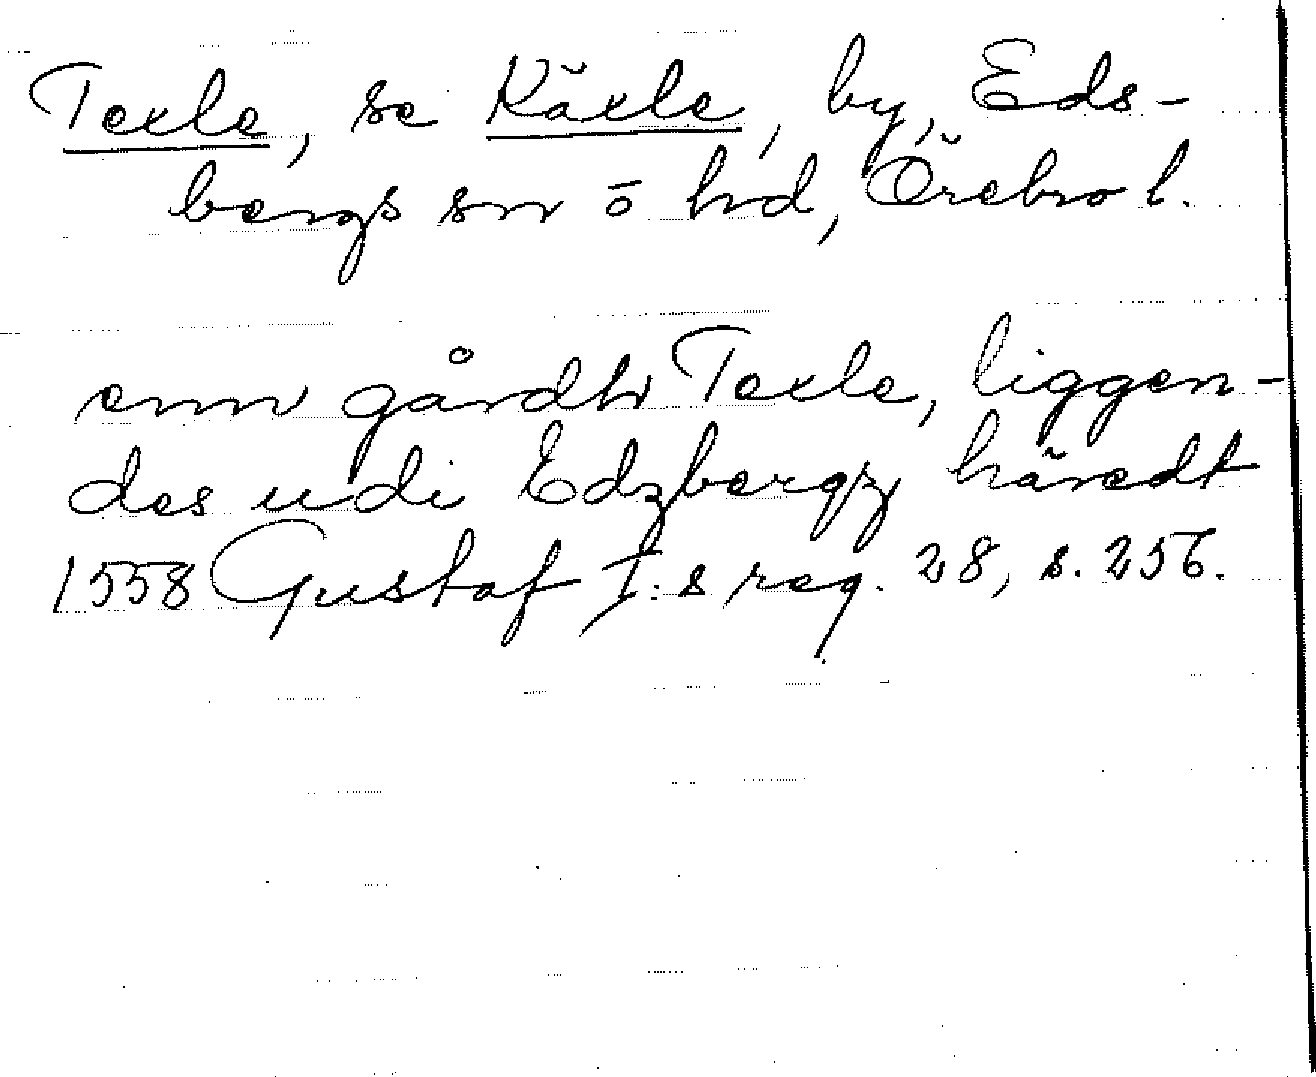 Texle, se Käxle, by, Eds-
bergs sn ō hd, Örebro l.
enn gårdh Texle, liggen-
des udi Edzbergz häredt
1558 Gustaf I:s reg. 28, s. 256.